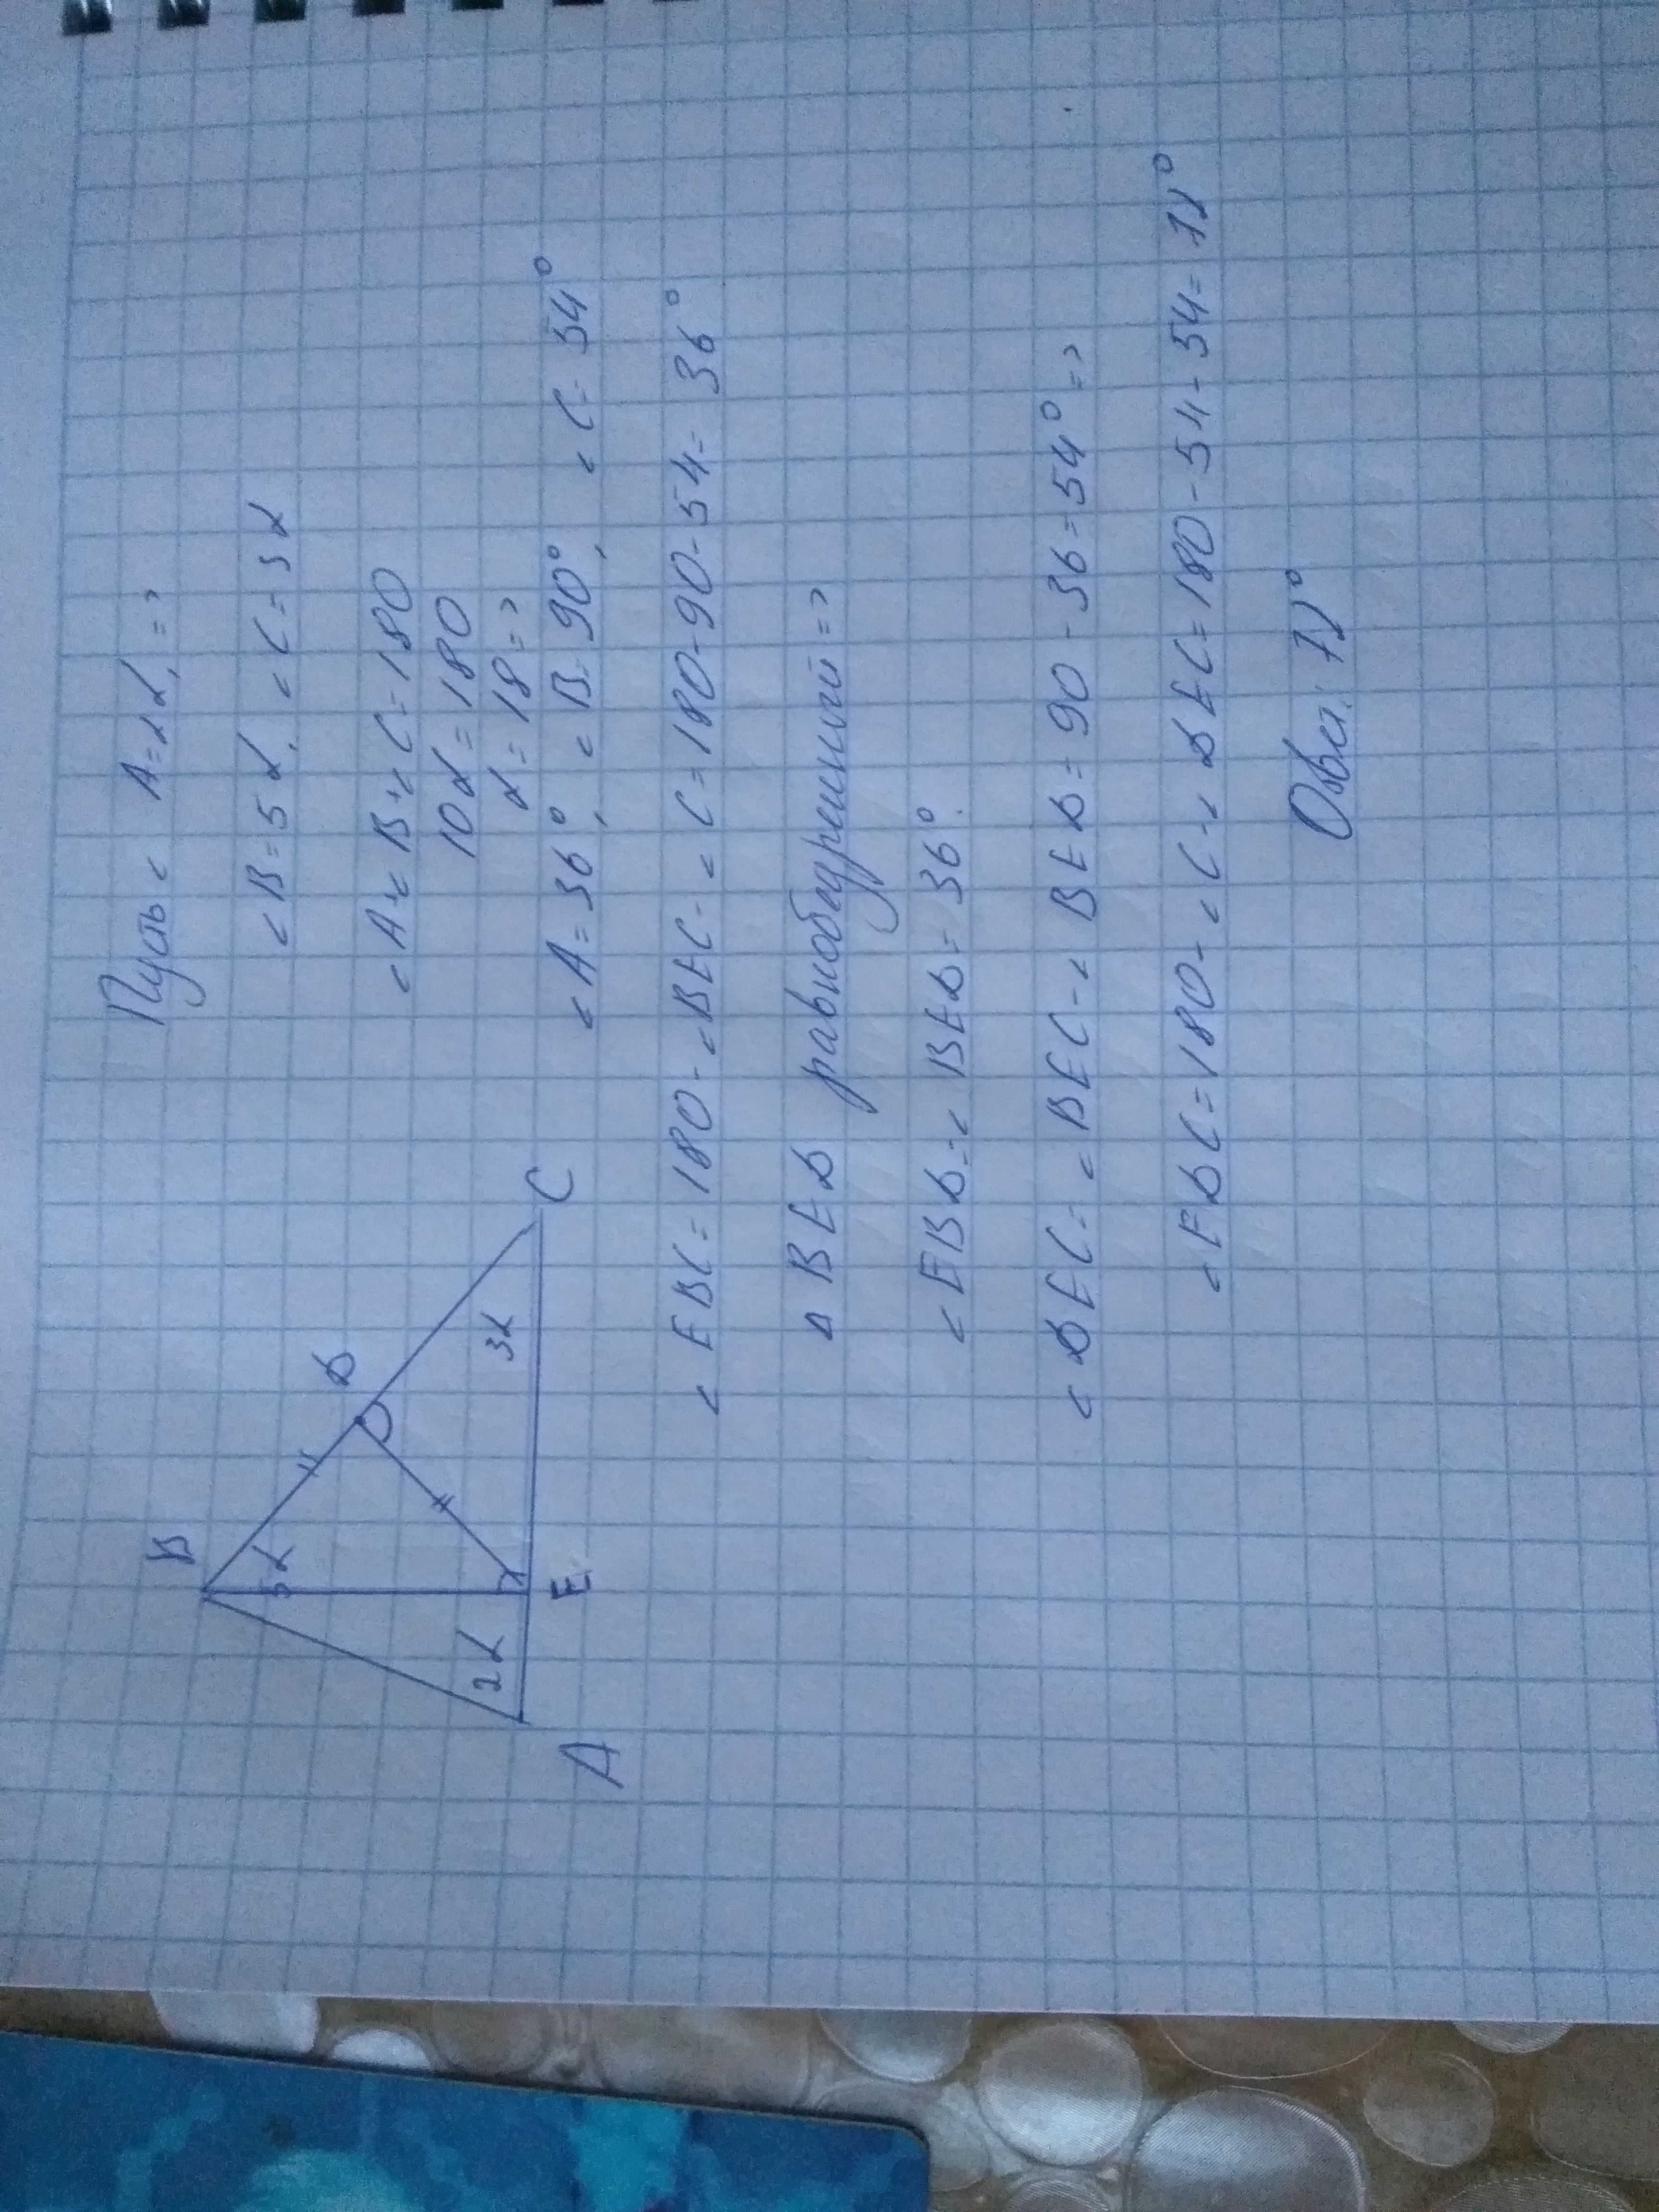 B
D
5α
2α
3α
A
E
C
Пусть < A = 2α, =>
< B = 5α, < C = 3α
< A + < B + < C = 180
10α = 180
α = 18 =>
< A = 36°, < B = 90°, < C = 54°
< EBC = 180 - < BEC - < C = 180 - 90 - 54 = 36°
Δ BED равнобедренний =>
< EBD = < BED = 36°
< DEC = < BEC - < BED = 90 - 36 = 54° =>
< EDC = 180 - < C - < DEC = 180 - 54 - 54 = 72°
Ответ: 72°